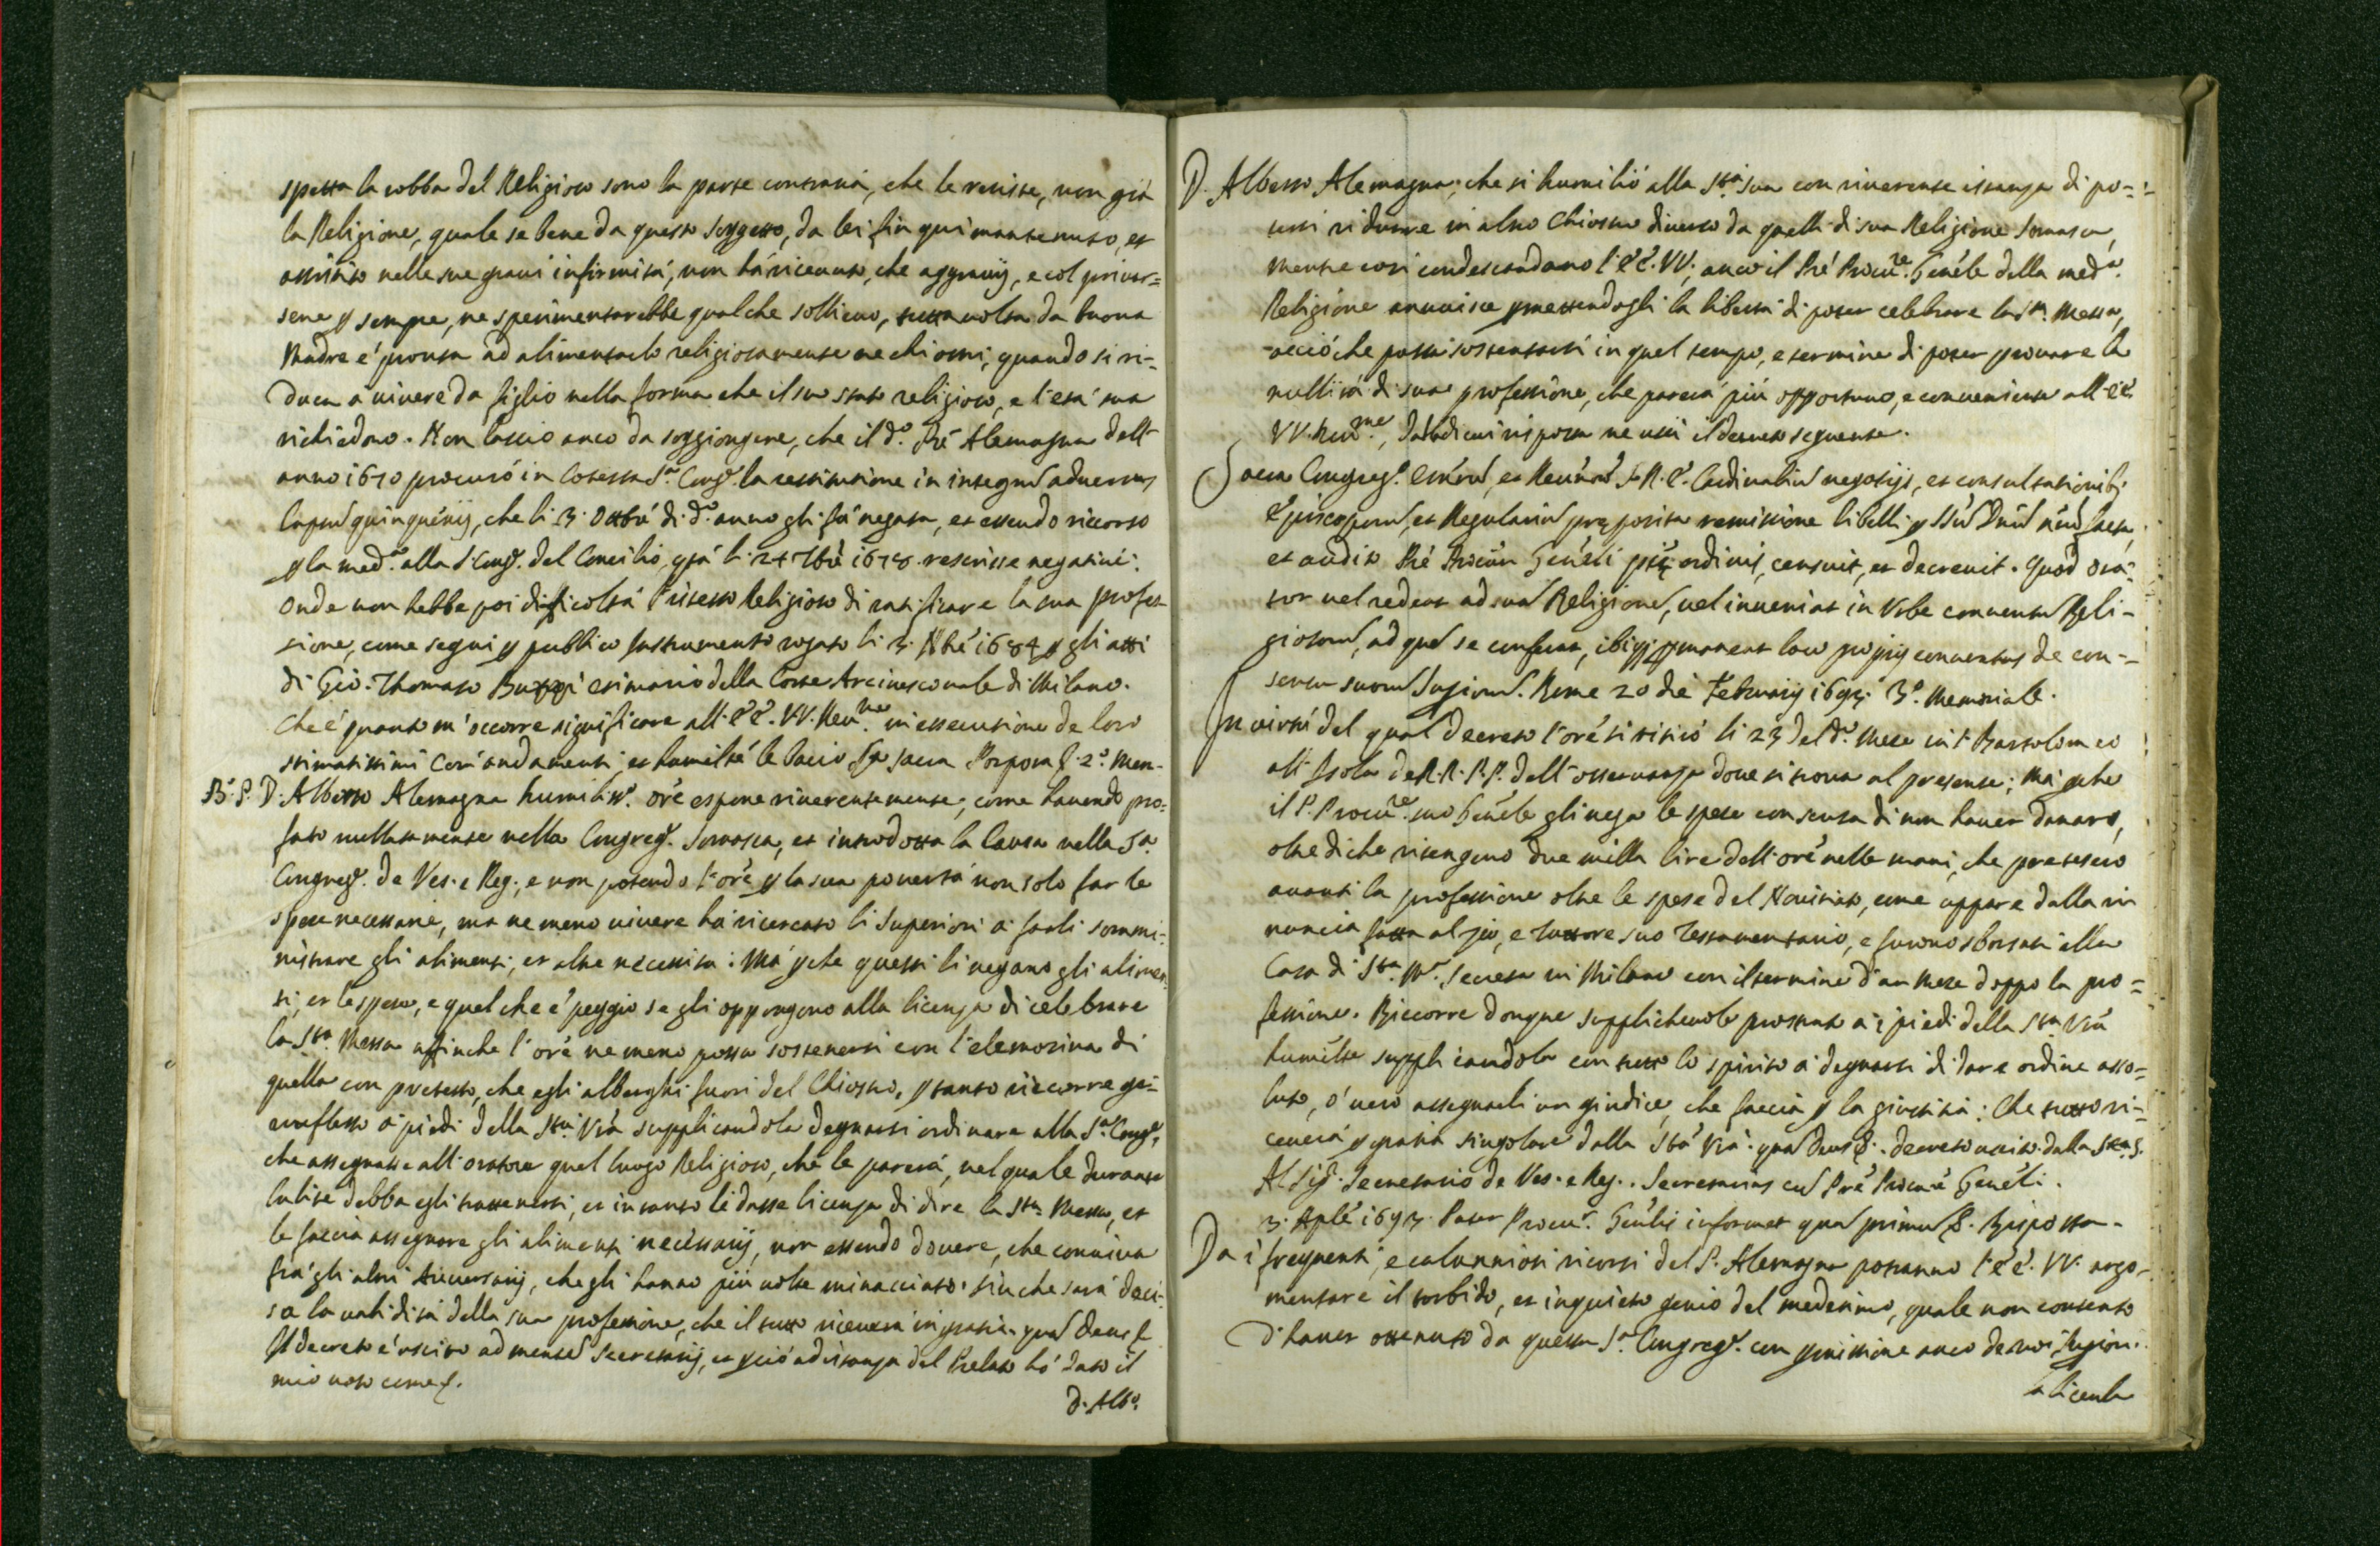 spetta la robba del Religioso sono la parte contraria, che le resiste, non già
la Religione, quale se bene da questo soggetto, da lei fin qui mantenuto, et
assistito nelle sue gravi infirmità, non hà ricevuto, che aggravij, e col privar=
sene p sempre, ne sperimentarebbe qualche sollievo, tutta volta da buona
Madre e' pronta ad alimentarlo religiosamente ne chiostri, quando si ri-
duca a vivere da figlio nella forma che il suo stato religioso, e l'età sua
richiedono. Non lascio anco da soggiongere, che il d.º Prê Alemagna dell'
anno 1670 procurò in Cotesta S.ª Cong. la restitutione in integrũ adversus
lapsũ quinquénij, che li 3. Ottbrê di d.º anno gli fù negata, et essendo ricorso
p la med.ª alla S. Cong. del Concilio, q̃sta li 24 7bre 1678 rescrisse negativé:
Onde non hebbe poi difficoltà l'istesso Religioso di ratificare la sua profes-
sione, come seguì p publico Instrumento rogato li 3. Nbrê 1684 p gli atti
di Gio. Thomaso Buzzi della Corte Arcivescovale di Milano.
Che è quanto m'occorre significare all' EE. VV. Rev.me in essecutione de loro
stimatissimi comandamenti, et humilte le bacio la sacra Porpora &. 2.º Mem-
B.S. D. Alberto Alemagna humiliss.º oré espone riverentemente, come havendo pro=
fesso nullamente nella Congreg. Somasca, et introdotta la Causa nella S.ª
Congreg. de Ves. e Reg., e non potendo l'orê p la sua povertà non solo far le
spese necessarie, ma ne meno vivere hà ricercato li Superiori à farli sommi=
nistrare gli alimenti, et altre necessità: Mà pche questi li negano gli alimen=
ti, et le spese, e quel che è peggio se gli oppongono alla licenza di celebrare
la Sta. Messa affinche l'orê ne meno possa sostenersi con l'elemosina di
quella con pretesto, che egli alberghi fuori del Chiostro, p tanto ricorre ge-
nuflesso à piedi della Stà Vrà supplicandola degnarsi ordinare alla S.ª Cong.,
che assegnasse all' oratore quel luogo Religioso, che le parerà, nel quale durante
la lite debba egli trattenersi, et in tanto le dasse licenza di dire la Sta. Messa, et
le faccia assegnare gli alimenti necessarij, non essendo dovere, che conviva
frà gli altri Aversarij, che gli hanno più volte minacciato. sin che sarà deci=
sa la validità della sua professione, che il tutto riceverà in gratia. quã Deus &
Il decreto è uscito ad mentẽ Secretarij, et p ciò ad istanza del Prelato hò dato il
mio voto come s.
D. Alb.º
D. Alberto Alemagna, che si humiliò alla Stà sua con riverente istanza di po=
tersi ridurre in altro Chiostro diverso da quelli di sua Religione Somasca,
mentre così condescendano l' EE. VV., anco il Prê Procu.re Genéle della med.ª
Religione annuisce pmettendogli la libertà di poter celebrare la Sta. Messa,
acciò che possi sostentarsi in quel tempo, e termine di poter provare la
nullità di sua professione, che parerà più opportuno, e conveniente all' EE.
VV. Rev.me, dalla di cui risposta ne uscì il decreto seguente.
Sacra Congreg. Emorũ, et Reverẽd. S.R.E. Cardinaliũ negotijs, et consultationib.
Episcoporũ, et Regulariũ pręposita remissione libelli p SSũ Dnũ Nrũ facta,
et audito Prê Procũr Genéli ordinis, censuit, et decrevit. Quod Ora-
tor vel redeat ad suã Religionẽ, vel inveniat in Urbe conventũ Reli-
giosorũ, ad quẽ se conferat, ibiq; pmaneat loco proprij conventus de con-
sensu suorũ Supriorũ. Rome 20 die Februarij 1693. 3.º Memoriale.
In virtù del qual decreto l'orê si ritirò li 23 del d.º Mese in S. Bartolomeo
all' Isola de R.R. P.P. dell' osservanza dove si trova al presente; Mà pche
il P. Procu.re suo Genéle gli nega le spese con scusa di non haver danaro,
oltre di che ritengono due milla lire dell' orê nelle mani, che pretesero
avanti la professione oltre le spese del Novitiato, come appare dalla ri
nuncia fatta al zio, e tuttore suo Testamentario, e furono sborsati alla
Casa di Sta. Mª. Secreta in Milano con il termine d'un Mese doppo la pro=
fessione. Ricorre donque supplichevole prostrato à i piedi della Sta Vrà
humilte supplicandola con tutto lo spirito à degnarsi di dare ordine asso=
luto, ò vero assegnarli un giudice, che faccia p la giustitia: Che tutto ri-
ceverà p gratia singolare dalla Stà Vrà. quã Deus &. decreto uscito dalla Sta. S.
Al Sig. Secretario de Ves. e Reg.. Secretarius cũ Prê Procurê Genéli.
3. Aplê 1693. Pater Procu.r Genlis informet quã primũ &. Risposta.
Da i frequenti, e calunniosi ricorsi del P. Alemagna potranno l' EE. VV. argo-
mentare il torbido, et inquieto genio del medesimo, quale non contento
d'haver ottenuto da questa S.ª Congreg. con pmissione anco de suoi Supriori
la licenza